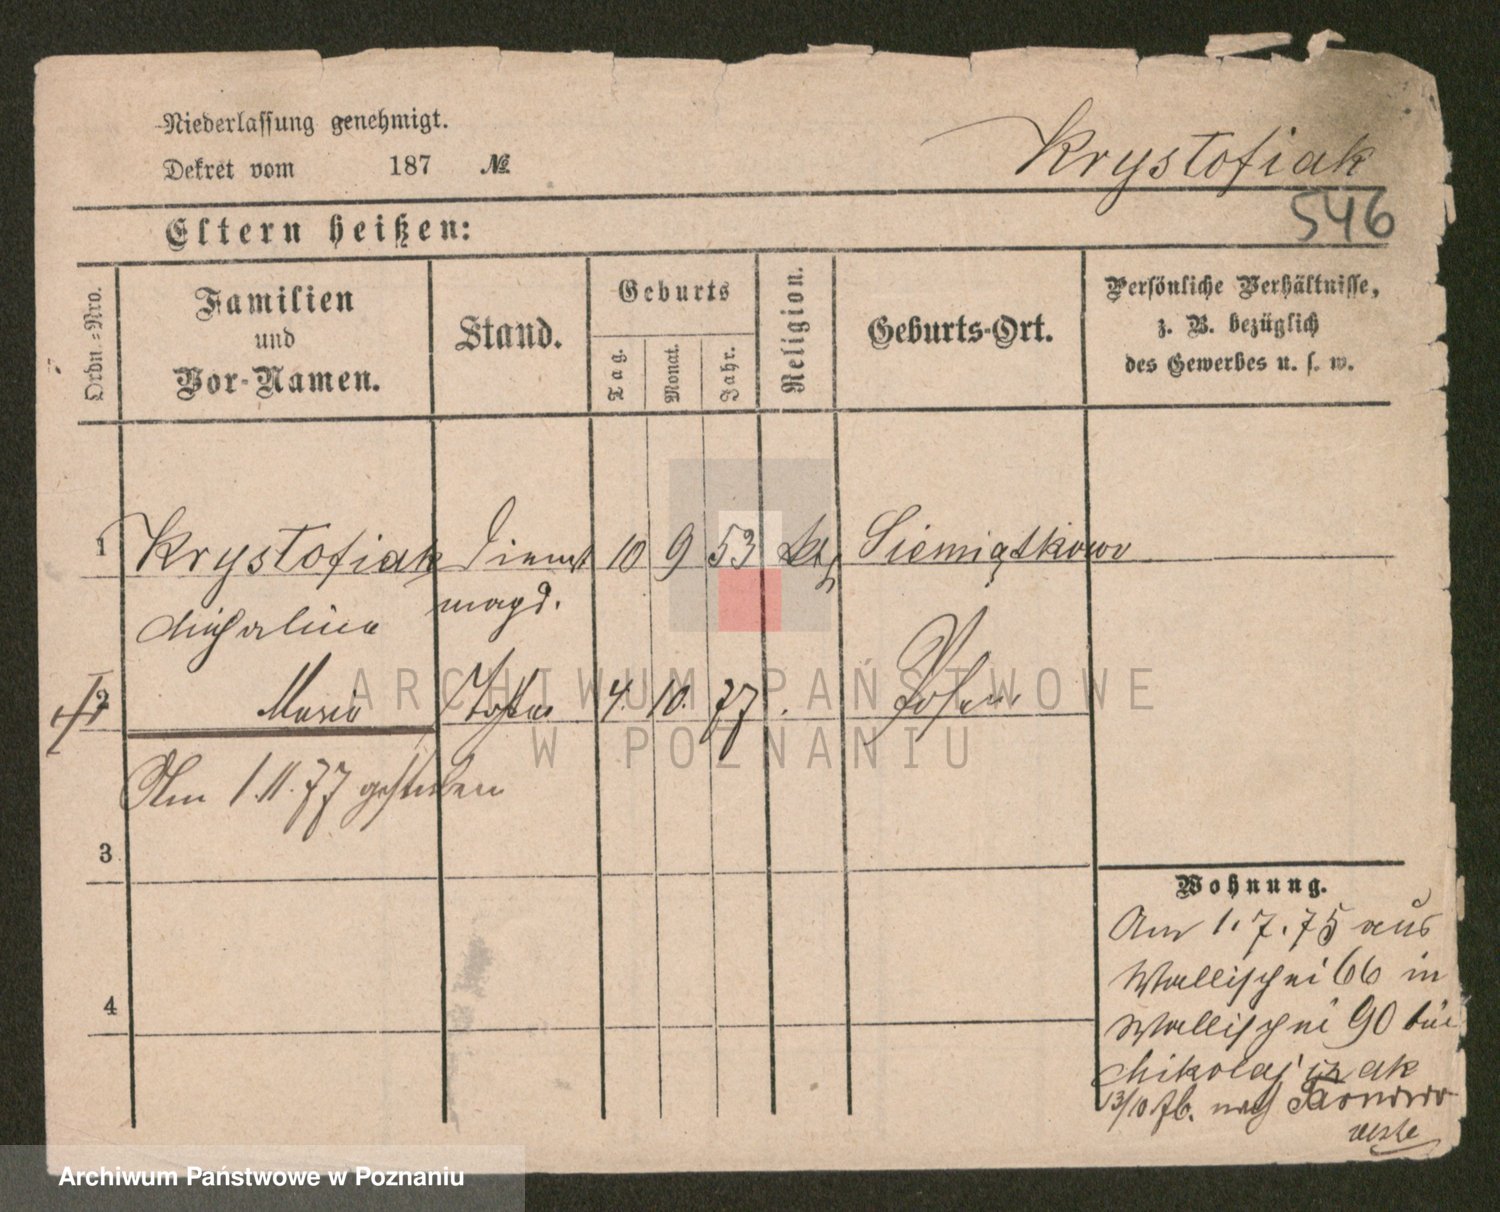 Niederlassung genehmigt.
Dekret vom 187 №
Krystofiak
546
Eltern heißen:
Ordn.-Nro.
Familien und Vor-Namen.
Stand.
Geburts
Tag.
Monat.
Jahr.
Religion.
Geburts-Ort.
Persönliche Verhältnisse,
z. B. bezüglich
des Gewerbes u. s. w.
1 Krystofiak Dienst 10 9 53 Siemiątkowo
Michalina magd.
2 Maria Tochter 4. 10. 77 Posen
Am 1.11.77 gestorben
3
4
Wohnung.
Am 1.7.75 aus
Wallischei 66 in
Wallischei 90 bei
Mikolajczak
13/10 76. nach
ARCHIWUM PAŃSTWOWE
W POZNANIU
Archiwum Państwowe w Poznaniu